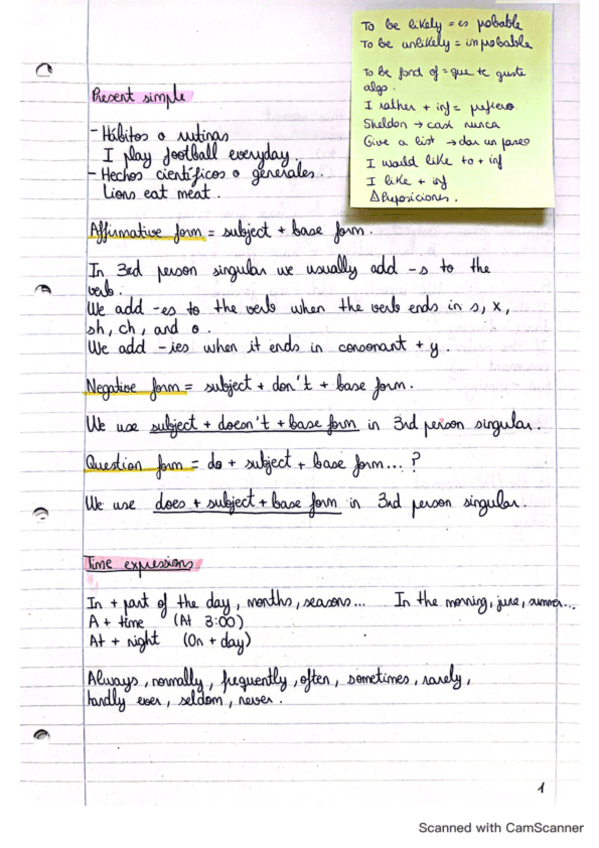 To be likely = es probable
To be unlikely = improbable
To be fond of = que te guste
algo.
I rather + inf = prefiero
Sheldon → casi nunca
Give a list → dar un paseo
I would like to + inf
I like + inf
Δ Preposiciones.
Present simple
- Hábitos o rutinas
I play football everyday.
- Hechos científicos o generales.
Lions eat meat.
Affirmative form = subject + base form.
In 3rd person singular we usually add -s to the
verb.
We add -es to the verb when the verb ends in s, x,
sh, ch, and o.
We add -ies when it ends in consonant + y.
Negative form = subject + don't + base form.
We use subject + doesn't + base form in 3rd person singular.
Question form = do + subject + base form... ?
We use does + subject + base form in 3rd person singular.
Time expressions
In + part of the day, months, seasons... In the morning, june, summer...
A + time (At 3:00)
At + night (On + day)
Always, normally, frequently, often, sometimes, rarely,
hardly ever, seldom, never.
1
Scanned with CamScanner